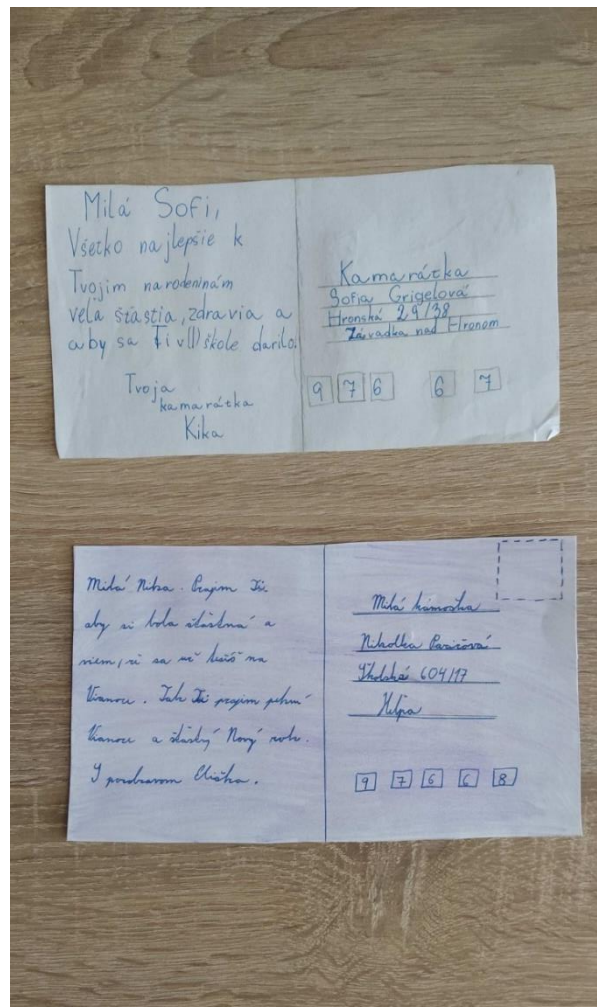 Milá Sofi,
Všetko najlepšie k
Tvojim narodeninám
veľa šťastia, zdravia a
aby sa Ti v škole darilo.
Tvoja
kamarátka
Kika
Kamarátka
Sofia Grigelová
Hronská 29/38
Závadka nad Hronom
9 7 6 6 7
Milá Nika. Prajem Ti
aby si bola šťastná a
viem, že sa už tešíš na
Vianoce. Tak Ti prajem pekné
Vianoce a šťastný Nový rok.
S pozdravom Eliška.
Milá kamoška
Nikolka
Školská 604/17
Heľpa
9 7 6 6 8